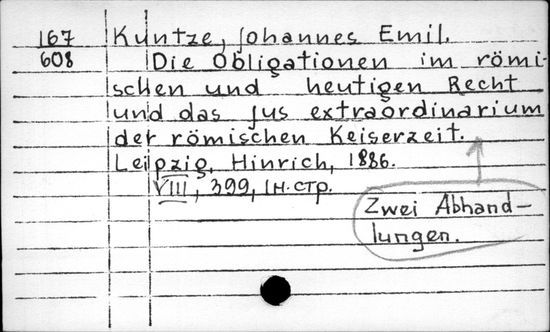 167 Kuntze, Johannes Emil.
608 Die Obligationen im römi-
schen und heutigen Recht
und das jus extraordinarium
der römischen Keiserzeit.
Leipzig, Hinrich, 1886.
VIII, 399, 1н. стр.
Zwei Abhand-
lungen.